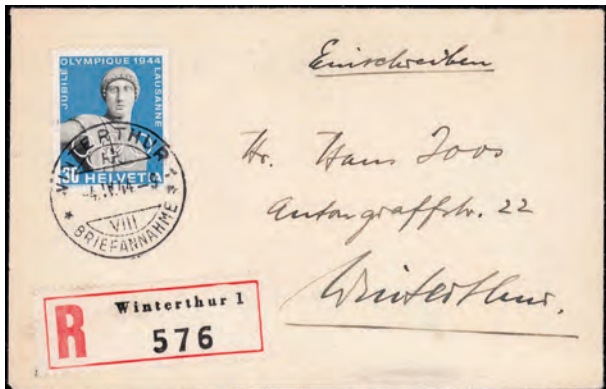 JUBILÉ OLYMPIQUE 1944 LAUSANNE
30 HELVETIA
WINTERTHUR 1
-4.IV.44.-9
VIII
* BRIEFANNAHME *
Einschreiben
Hr. Hans Joos
Antongraffstr. 22
Winterthur.
R
Winterthur 1
576